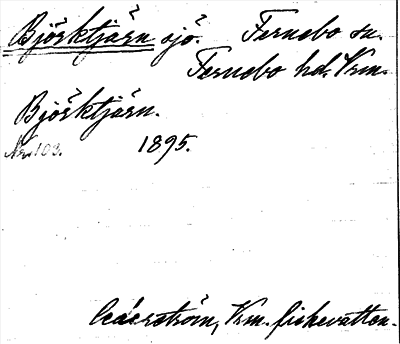 Björktjärn sjö. Fernebo sn.
Fernebo hd. Vrm.
Björktjärn.
Nr. 103. 1895.
Cederström, Vrm. fiskevatten.